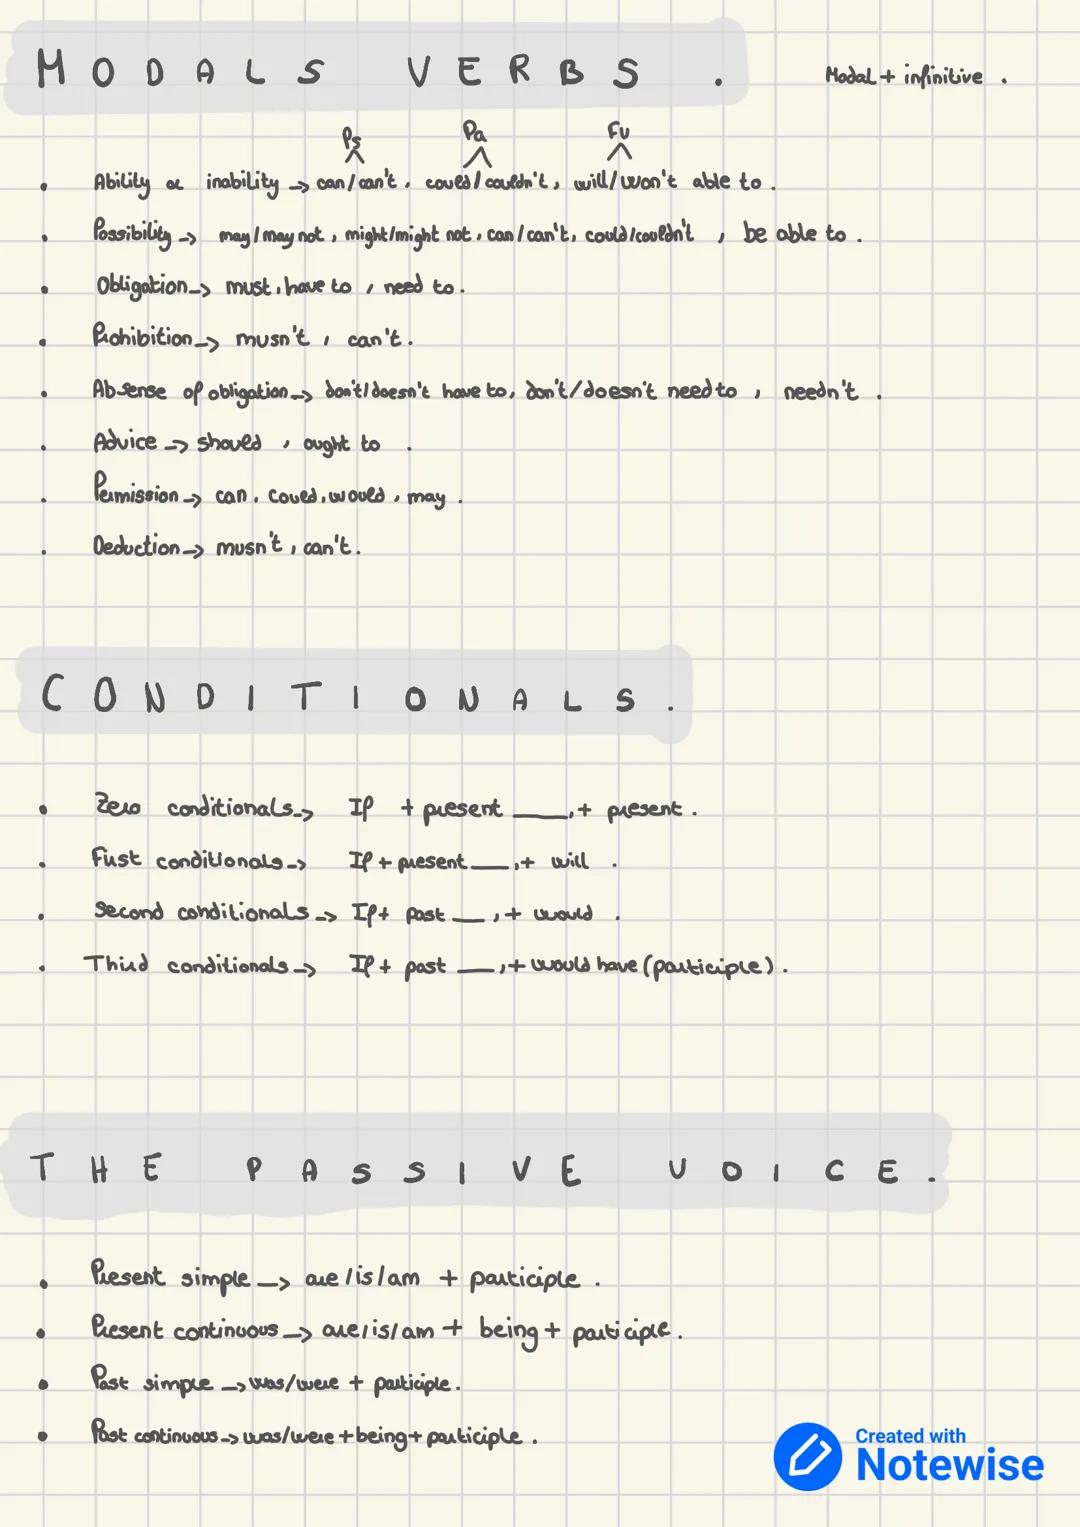 MODALS VERBS.
Modal + infinitive.
Ps Pa Fu
• Ability or inability → can/can't, could/couldn't, will/won't able to.
• Possibility → may/may not, might/might not, can/can't, could/couldn't, be able to.
• Obligation → must, have to, need to.
• Prohibition → musn't, can't.
• Absense of obligation → don't/doesn't have to, don't/doesn't need to, needn't.
• Advice → should, ought to.
• Permission → can, could, would, may.
• Deduction → musn't, can't.
CONDITIONALS.
• Zero conditionals → If + present ___, + present.
• First conditionals → If + present ___, + will.
• Second conditionals → If + past ___, + would.
• Third conditionals → If + past ___, + would have (participle).
THE PASSIVE VOICE.
• Present simple → are/is/am + participle.
• Present continuous → are/is/am + being + participle.
• Past simple → was/were + participle.
• Past continuous → was/were + being + participle.
Created with
Notewise